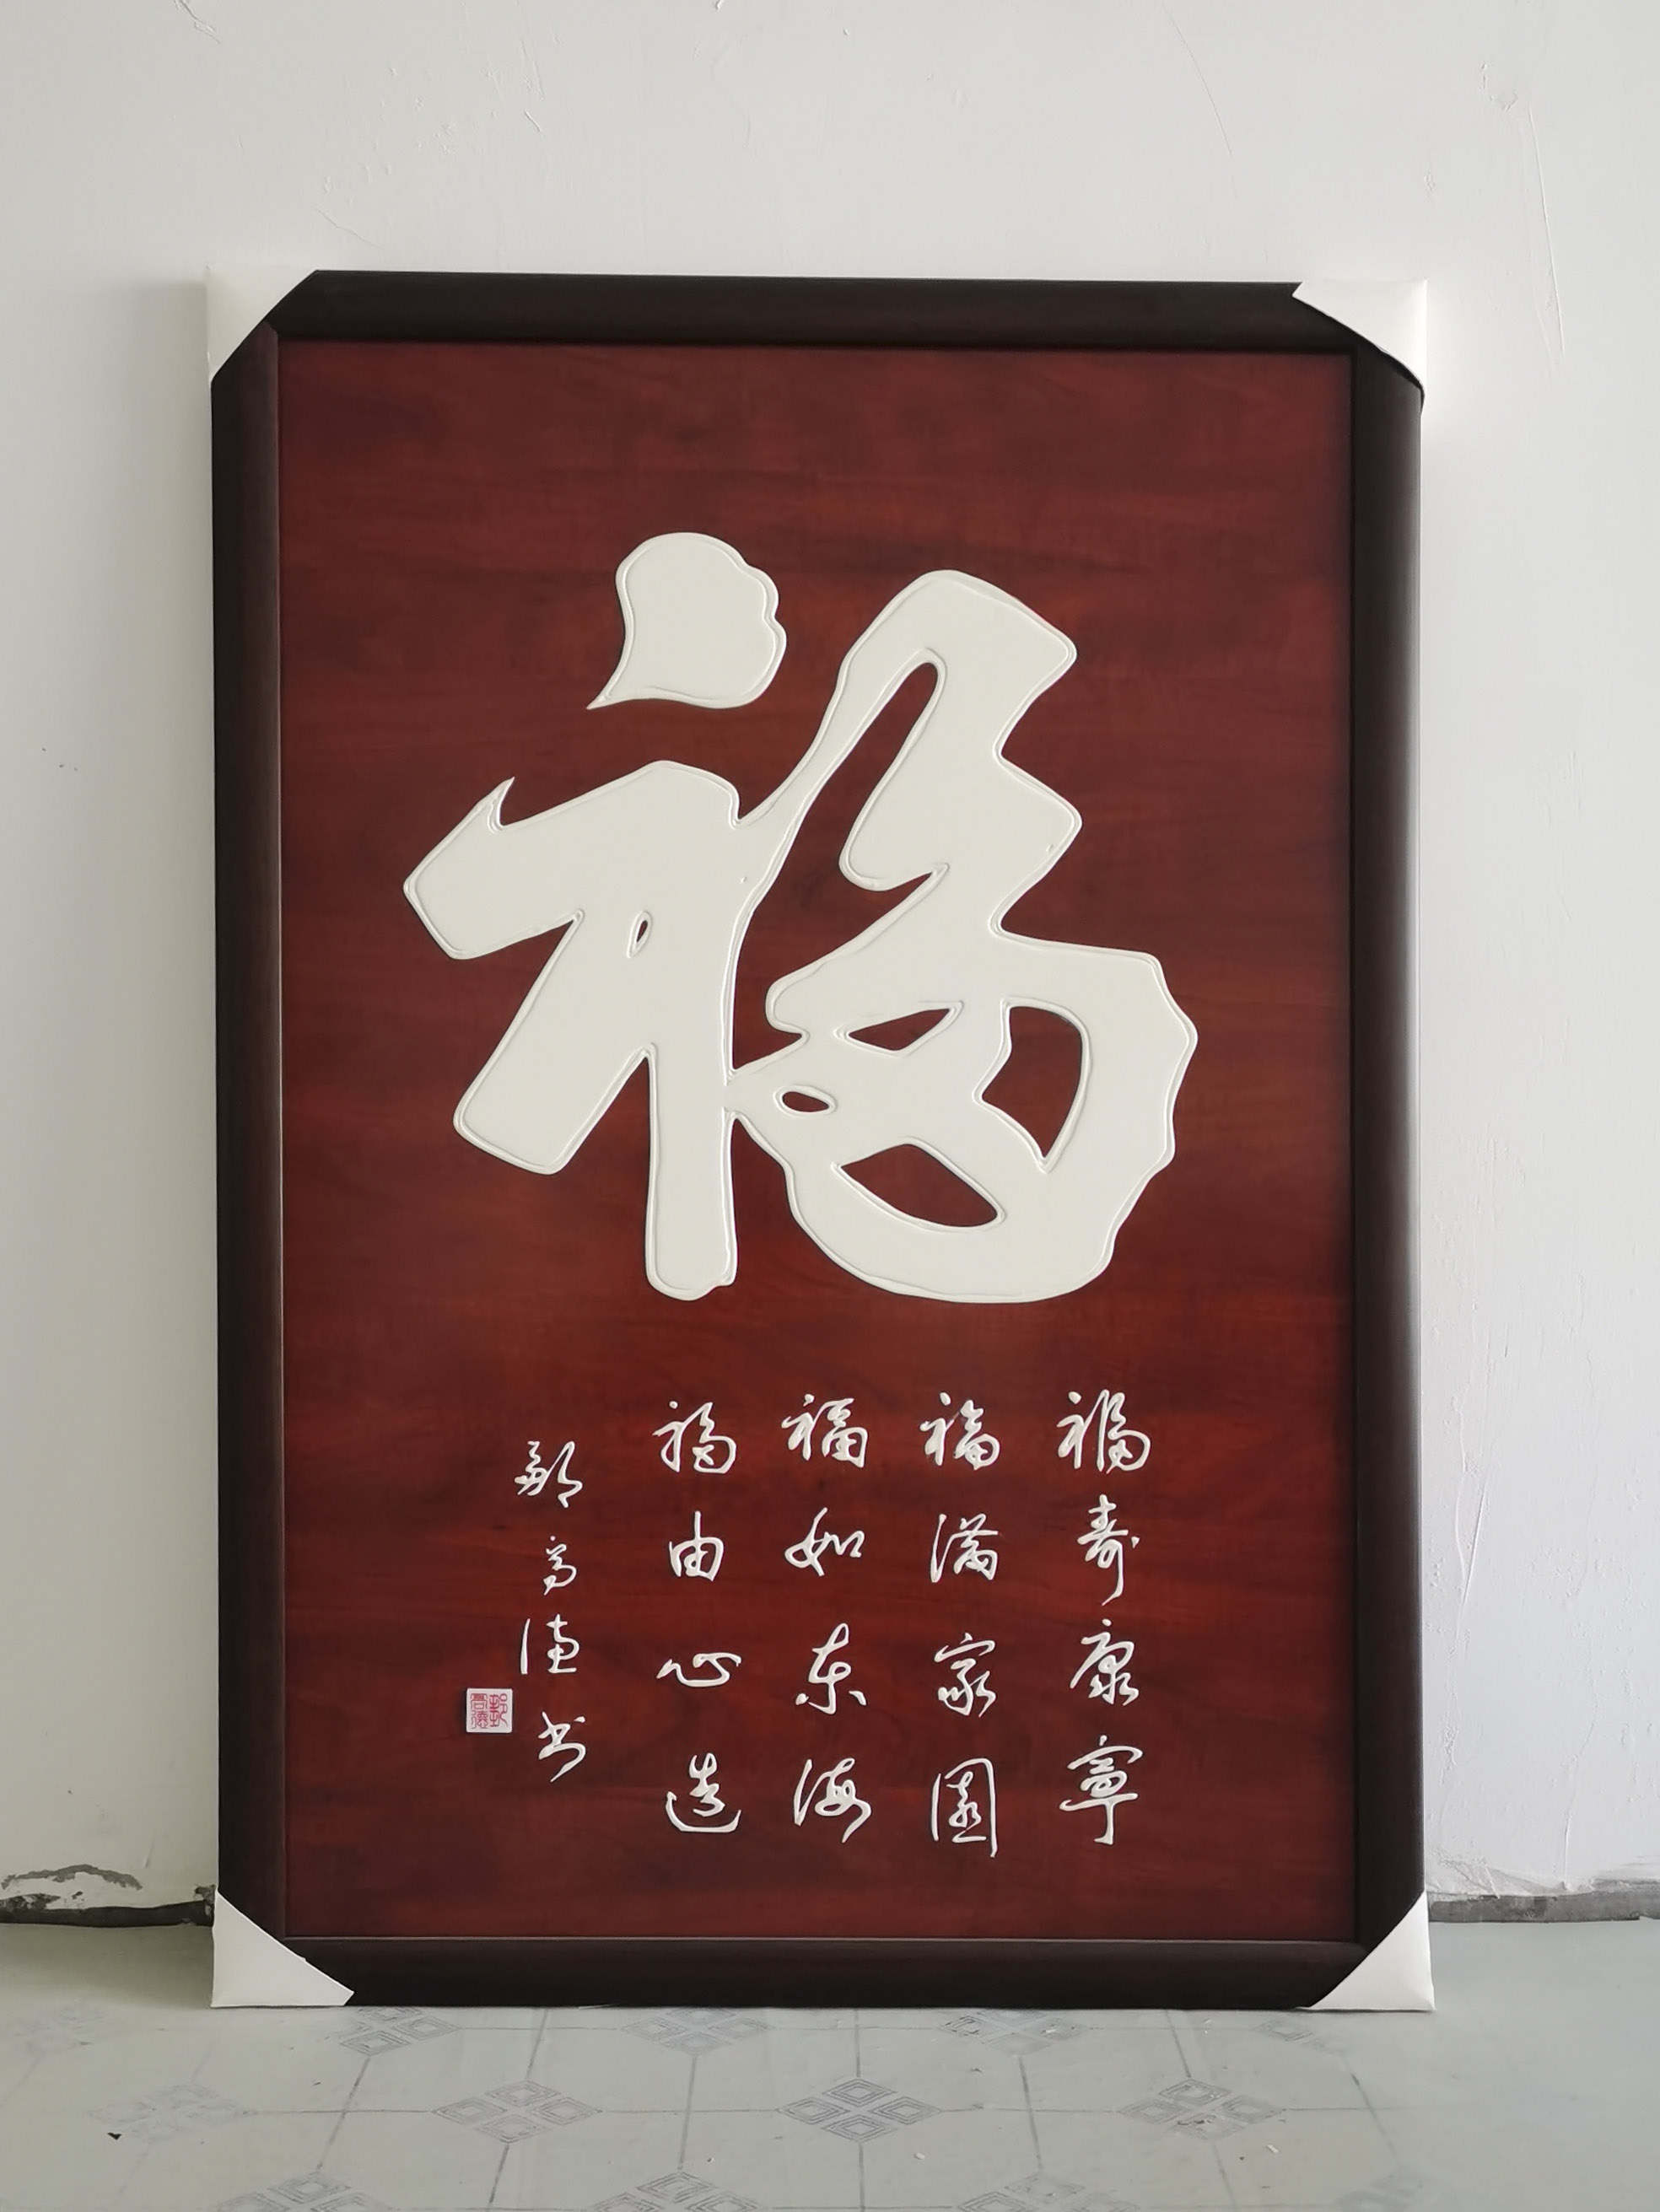 福
福寿康寧
福满家園
福如东海
福由心造
鄭高德书